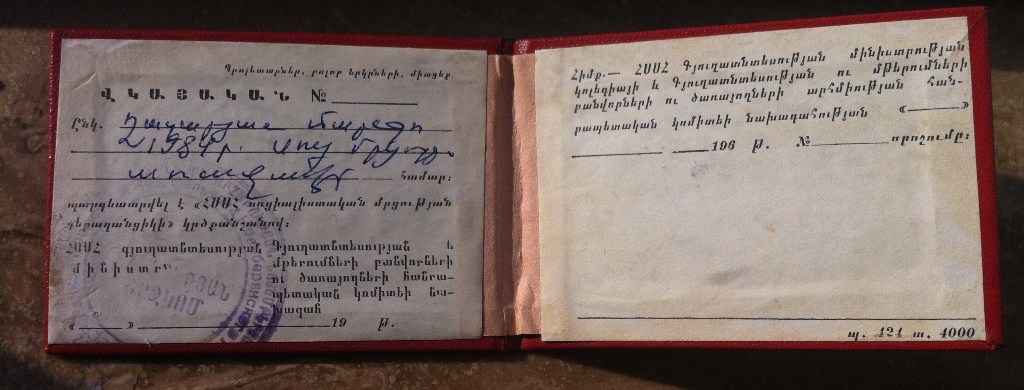 Պրոլետարներ, բոլոր երկրների, միացեք
ՎԿԱՅԱԿԱՆ №
Ընկ.
1984թ. սոց մրցույթ
առաջավոր
համար։
պարգևատրվել է «ՀՍՍՀ սոցիալիստական մրցության
գերազանցիկի» կրծքանշանով։
ՀՍՍՀ գյուղատնտեսության
մինիստր
Գյուղատնտեսության և
մթերումների բանվորների
ու ծառայողների հանրա-
պետական կոմիտեի նա-
խագահ
« » 19 թ.
Հիմք.— ՀՍՍՀ Գյուղատնտեսության մինիստրության
կոլեգիայի և Գյուղատնտեսության ու մթերումների
բանվորների ու ծառայողների արհմիության հան-
րապետական կոմիտեի նախագահության « »
196 թ. № որոշումը։
պ. 424 տ. 4000